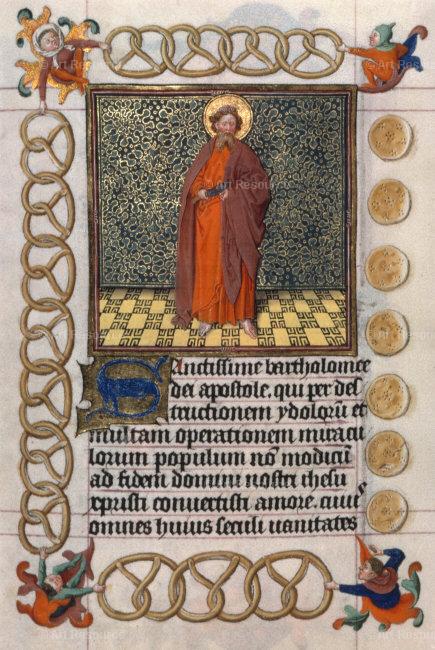 SAnctissime bartholomee
dei apostole, qui per des
tructionem ydolorū et
multam operationem miracu
lorum populum nō modicū
ad fidem domini nostri ihesu
xpristi convertisti amore. cuius
omnes huius seculi uanitates
© Art Resource